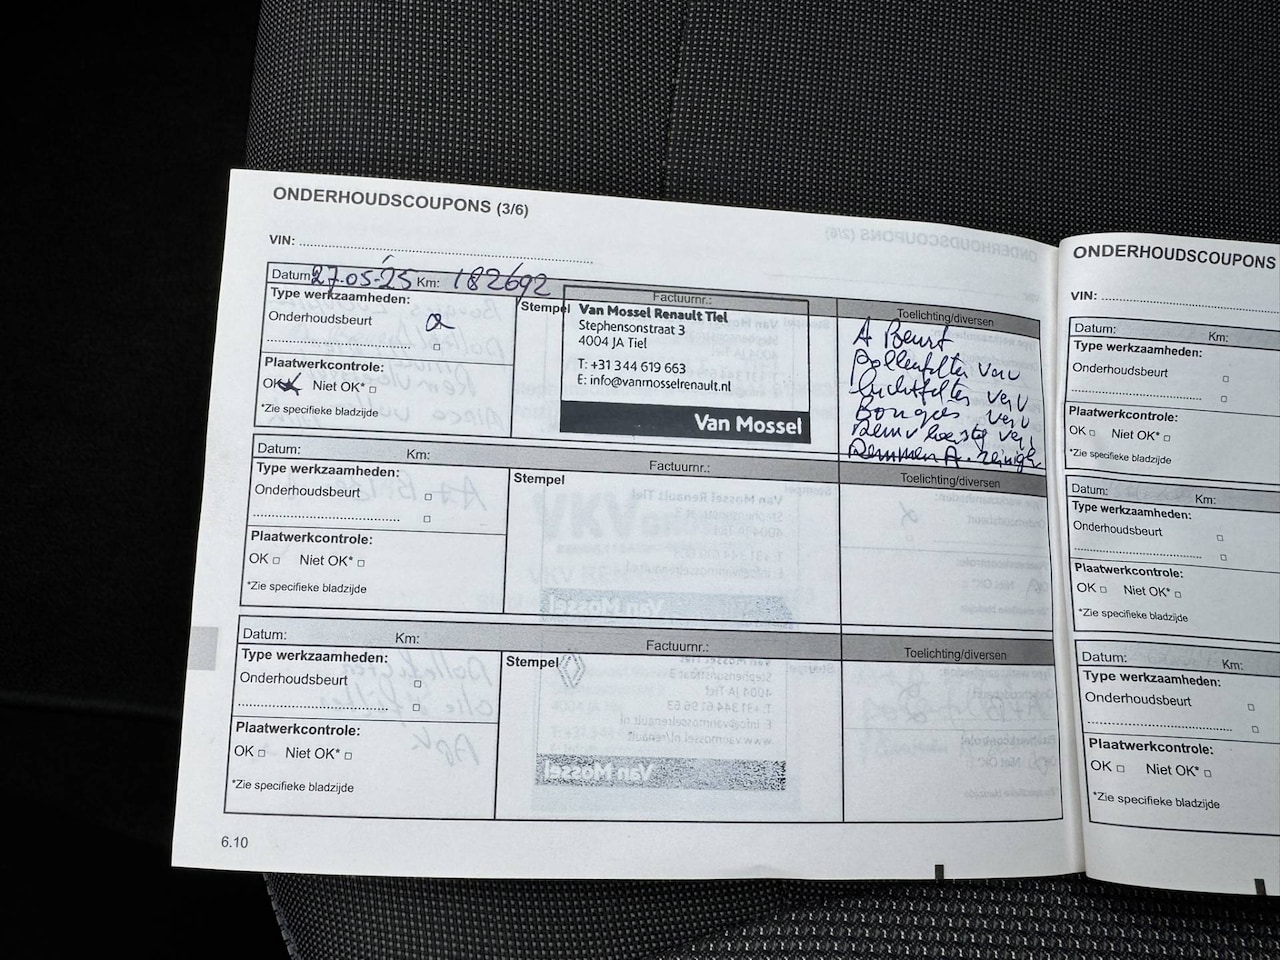 ONDERHOUDSCOUPONS (3/6)
VIN:
Datum: 27-05-25 Km: 182692
Factuurnr.:
Type werkzaamheden:
Onderhoudsbeurt
Plaatwerkcontrole:
OK Niet OK*
*Zie specifieke bladzijde
Stempel
Van Mossel Renault Tiel
Stephensonstraat 3
4004 JA Tiel
T: +31 344 619 663
E: info@vanmosselrenault.nl
Van Mossel
Toelichting/diversen
A Beurt
Pollenfilter verv
Luchtfilter verv
Bougies verv
Remvloeistof verv
Remmen A. reinig
Datum: Km:
Factuurnr.:
Type werkzaamheden:
Onderhoudsbeurt
Plaatwerkcontrole:
OK Niet OK*
*Zie specifieke bladzijde
Stempel
Toelichting/diversen
Datum: Km:
Factuurnr.:
Type werkzaamheden:
Onderhoudsbeurt
Plaatwerkcontrole:
OK Niet OK*
*Zie specifieke bladzijde
Stempel
Toelichting/diversen
6.10
ONDERHOUDSCOUPONS
VIN:
Datum: Km:
Type werkzaamheden:
Onderhoudsbeurt
Plaatwerkcontrole:
OK Niet OK*
*Zie specifieke bladzijde
Datum: Km:
Type werkzaamheden:
Onderhoudsbeurt
Plaatwerkcontrole:
OK Niet OK*
*Zie specifieke bladzijde
Datum: Km:
Type werkzaamheden:
Onderhoudsbeurt
Plaatwerkcontrole:
OK Niet OK*
*Zie specifieke bladzijde